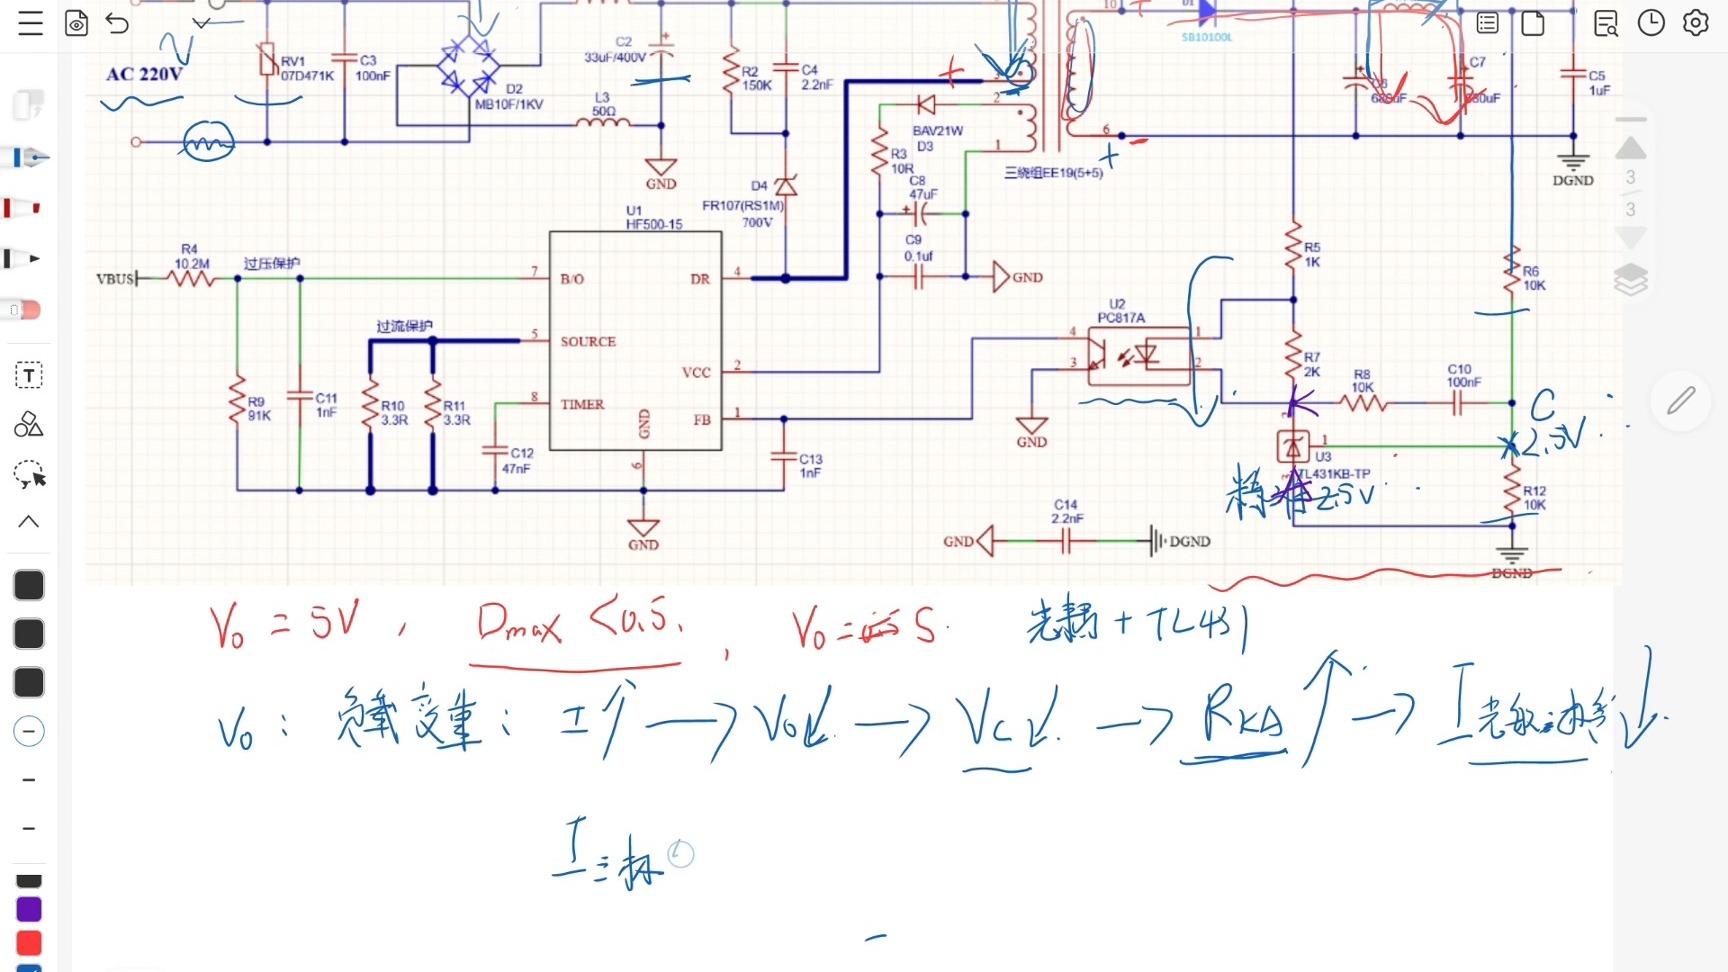 10
SB10100L
C2
33uF/400V
R2
150K
C4
2.2nF
RV1
07D471K
C3
100nF
AC 220V
D2
MB10F/1KV
L3
50Ω
GND
2
1
BAV21W
D3
R3
10R
C8
47uF
C9
0.1uf
GND
三绕组EE19(5+5)
6
+
C7
C5
1uF
DGND
3
3
D4
FR107(RS1M)
700V
U1
HF500-15
VBUS
R4
10.2M
过压保护
7 B/O
DR 4
过流保护
5 SOURCE
VCC 2
8 TIMER
FB 1
GND
6
R9
91K
C11
1nF
R10
3.3R
R11
3.3R
C12
47nF
C13
1nF
GND
U2
PC817A
4
3
1
2
GND
R5
1K
R7
2K
R6
10K
R8
10K
C10
100nF
C
2.5V
1
U3
TL431KB-TP
精准2.5V
R12
10K
C14
2.2nF
GND
DGND
DGND
V₀ = 5V , Dmax <0.5. , V₀ = 5. 光耦 + TL431
V₀ : 负载变重 : I↑ → V₀↓. → Vc↓. → RKA ↑ → I光敏二极管↓.
I三极
T